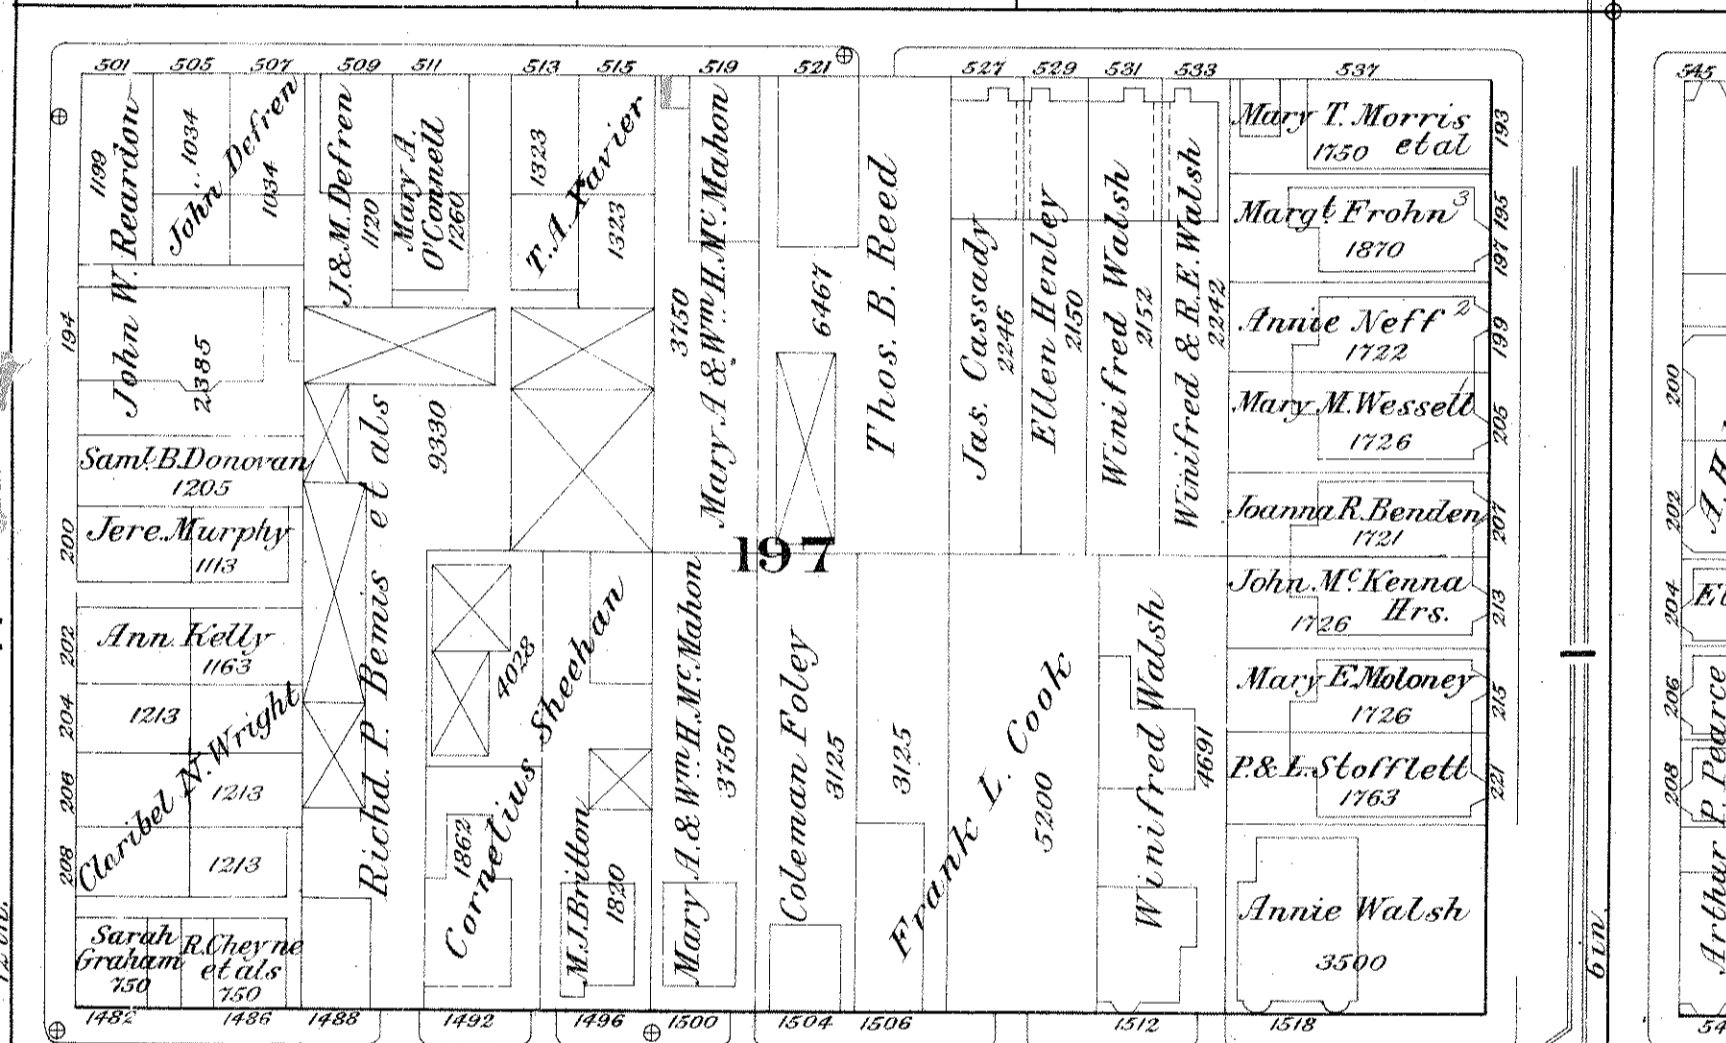 501 505 507 509 511 513 515 519 521 527 529 531 533 537 545
1199
John W. Reardon
1034
John Defren
1034
J. & M. Defren
1120
Mary A.
O'Connell
1260
1323
T. A. Xavier
1323
3750
Mary A & Wm. H. McMahon
6467
Thos. B. Reed
Jas. Cassady
2246
Ellen Henley
2150
Winifred Walsh
2152
Winifred & R. E. Walsh
2242
Mary T. Morris
et al
1750
193
Margt Frohn 3
1870
195
197
Annie Neff 2
1722
199
Mary M. Wessell
1726
205
Joanna R. Benden
1721
207
John McKenna
Hrs.
1726
213
Mary E. Moloney
1726
215
P. & L. Stofflett
1763
221
Annie Walsh
3500
194
2385
Saml. B. Donovan
1205
200
Jere. Murphy
1113
202
Ann Kelly
1163
204
1213
Claribel N. Wright
206
1213
208
1213
Sarah
Graham
750
R. Cheyne
et als
750
Richd. P. Bemis et als
9330
197
4028
Cornelius Sheehan
1862
M. J. Britton
1820
Mary A. & Wm. H. McMahon
3750
Coleman Foley
3125
3125
Frank L. Cook
5200
Winifred Walsh
4691
1482 1486 1488 1492 1496 1500 1504 1506 1512 1518
6 in.
200
202
204
206
208
Arthur P. Pearce